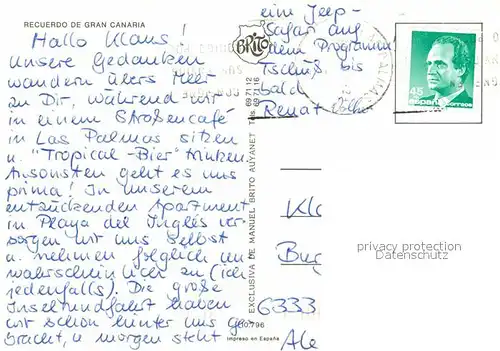 RECUERDO DE GRAN CANARIA
Hallo Klaus!
Unsere Gedanken
wandern übers Meer
zu Dir, während wir
in einem Straßencafé
in Las Palmas sitzen
u. "Tropical-Bier" trinken.
Ansonsten geht es uns
prima! In unserem
entzückenden Apartment
in Playa del Inglés ver-
sorgen wir uns selbst
u. nehmen folglich
wahrscheinlich zu (ich
jedenfalls). Die große
Inselrundfahrt haben
wir schon hinter uns ge-
bracht, u. morgen steht
eine Jeep-
Safari auf
dem Programm
Tschüß, bis
bald
Renat
Volker
BRITO
EXCLUSIVA DE MANUEL BRITO AUYANET
Tels. 697112
697116
Impreso en España
45
España
correos
Kla
Bur
6333
Ale
privacy protection
Datenschutz